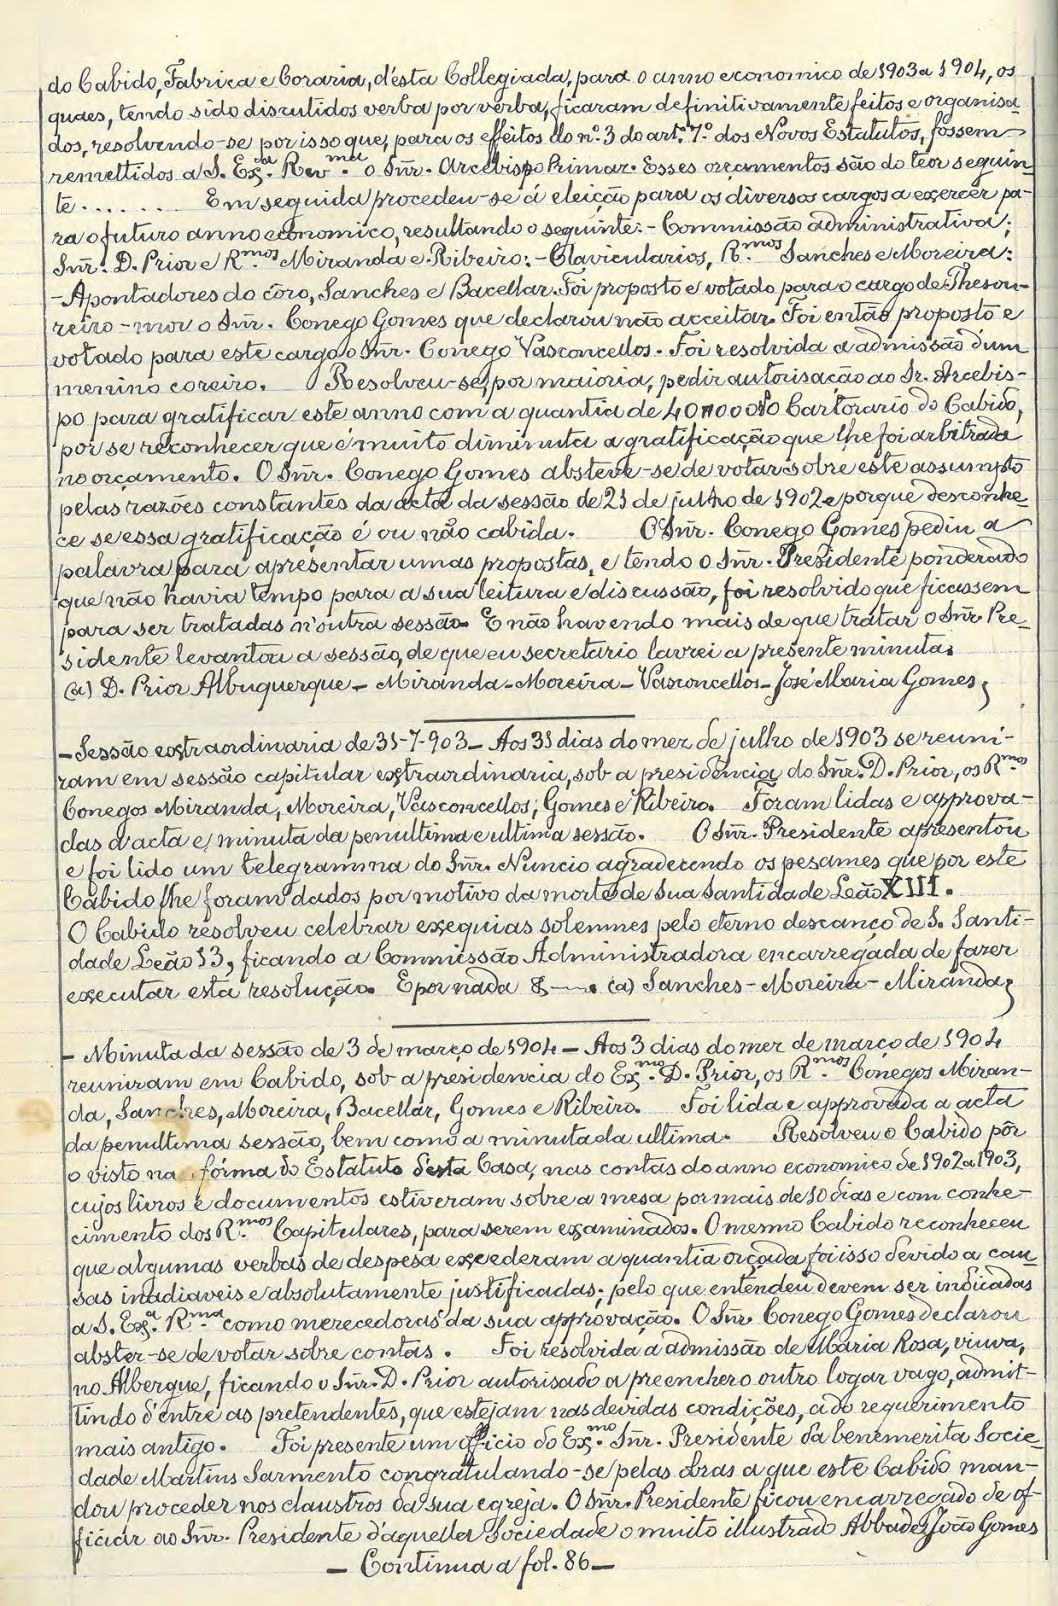 do Cabido, Fabrica e Coraria, d'esta Collegiada, para o anno economico de 1903 a 1904, os
quaes, tendo sido discutidos verba por verba, ficaram definitivamente feitos e organisa-
dos, resolvendo-se por isso que, para os effeitos do n.º 3 do art.º 7.º dos Novos Estatutos, fossem
remettidos a S. Ex.ª Rev.ma o Snr. Arcebispo Primaz. Esses orçamentos são do teor seguin-
te....... Em seguida procedeu-se á eleição para os diversos cargos a exercer pa-
ra o futuro anno economico, resultando o seguinte: - Commissão administrativa;
Snr. D. Prior e R.mos Miranda e Ribeiro: - Clavicularios, R.mos Sanches e Moreira:
- Apontadores do côro, Sanches e Bacellar. Foi proposto e votado para o cargo de Thesou-
reiro-mor o Snr. Conego Gomes que declarou não acceitar. Foi então proposto e
votado para este cargo o Snr. Conego Vasconcellos. Foi resolvida a admissão d'um
menino coreiro. Resolveu-se, por maioria, pedir autorisação ao Sr. Arcebis-
po para gratificar este anno com a quantia de 40$000 o Cartorario do Cabido,
por se reconhecer que é muito diminuta a gratificação que lhe foi arbitrada
no orçamento. O Snr. Conego Gomes absteve-se de votar sobre este assumpto
pelas razões constantes da acta da sessão de 21 de julho de 1902 e porque desconhe-
ce se essa gratificação é ou não cabida. O Snr. Conego Gomes pediu a
palavra para apresentar umas propostas, e tendo o Snr. Presidente ponderado
que não havia tempo para a sua leitura e discussão, foi resolvido que ficassem
para ser tratadas n'outra sessão. E não havendo mais de que tratar o Snr. Pre-
sidente levantou a sessão, de que eu secretario lavrei a presente minuta.
(a) D. Prior Albuquerque - Miranda - Moreira - Vasconcellos - José Maria Gomes,
- Sessão extraordinaria de 31-7-903 - Aos 31 dias do mez de julho de 1903 se reuni-
ram em sessão capitular extraordinaria, sob a presidencia do Snr. D. Prior, os R.mos
Conegos Miranda, Moreira, Vasconcellos, Gomes e Ribeiro. Foram lidas e approva-
das a acta e minuta da penultima e ultima sessão. O Snr. Presidente apresentou
e foi lido um telegramma do Snr. Nuncio agradecendo os pesames que por este
Cabido lhe foram dados por motivo da morte de Sua Santidade Leão XIII.
O Cabido resolveu celebrar exequias solemnes pelo eterno descanço de S. Santi-
dade Leão 13, ficando a Commissão Administradora encarregada de fazer
executar esta resolução. E por nada &—. (a) Sanches - Moreira - Miranda,
- Minuta da sessão de 3 de março de 1904 - Aos 3 dias do mez de março de 1904
reuniram em Cabido, sob a presidencia do Ex.mo D. Prior, os R.mos Conegos Miran-
da, Sanches, Moreira, Bacellar, Gomes e Ribeiro. Foi lida e approvada a acta
da penultima sessão, bem como a minuta da ultima. Resolveu o Cabido pôr
o visto na fórma do Estatuto d'esta Casa, nas contas do anno economico de 1902 a 1903,
cujos livros e documentos estiveram sobre a mesa por mais de 10 dias e com conhe-
cimento dos R.mos Capitulares, para serem examinados. O mesmo Cabido reconheceu
que algumas verbas de despesa excederam a quantia orçada foi isso devido a cau-
sas inadiaveis e absolutamente justificadas; pelo que entendeu devem ser indicadas
a S. Ex.ª R.ma como merecedoras da sua approvação. O Snr. Conego Gomes declarou
abster-se de votar sobre contas. Foi resolvida a admissão de Maria Rosa, viuva,
no Albergue, ficando o Snr. D. Prior autorisado a preencher o outro logar vago, admit-
tindo d'entre as pretendentes, que estejam nas devidas condições, a do requerimento
mais antigo. Foi presente um officio do Ex.mo Snr. Presidente da benemerita Socie-
dade Martins Sarmento congratulando-se pelas obras a que este Cabido man-
dou proceder nos claustros da sua egreja. O Snr. Presidente ficou encarregado de of-
ficiar ao Snr. Presidente d'aquella Sociedade o muito illustrado Abbade João Gomes
- Continua a fol. 86 -